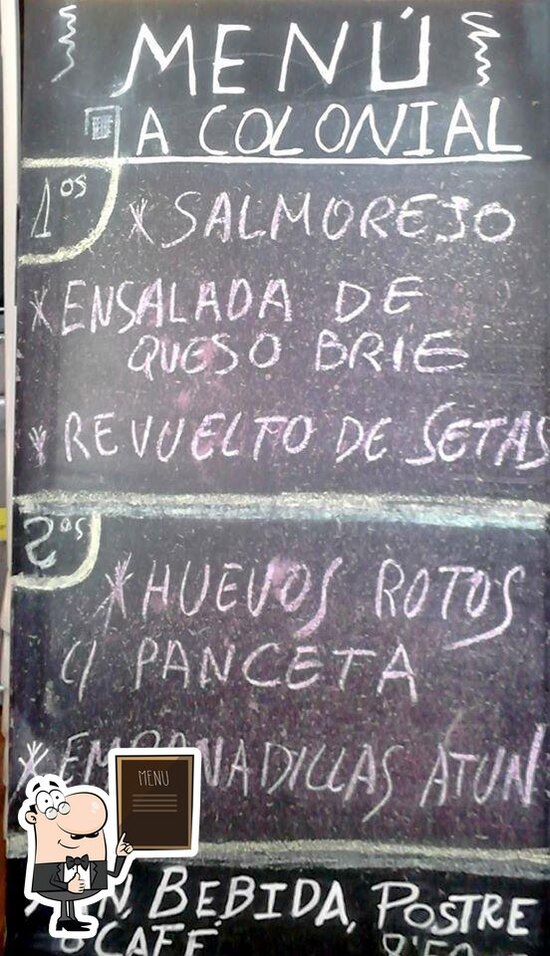 MENÚ
A COLONIAL
1os
* SALMOREJO
* ENSALADA DE
QUESO BRIE
* REVUELTO DE SETAS
2os
* HUEVOS ROTOS
C/ PANCETA
* EMPANADILLAS ATUN
MENU
BEBIDA, POSTRE
O CAFÉ